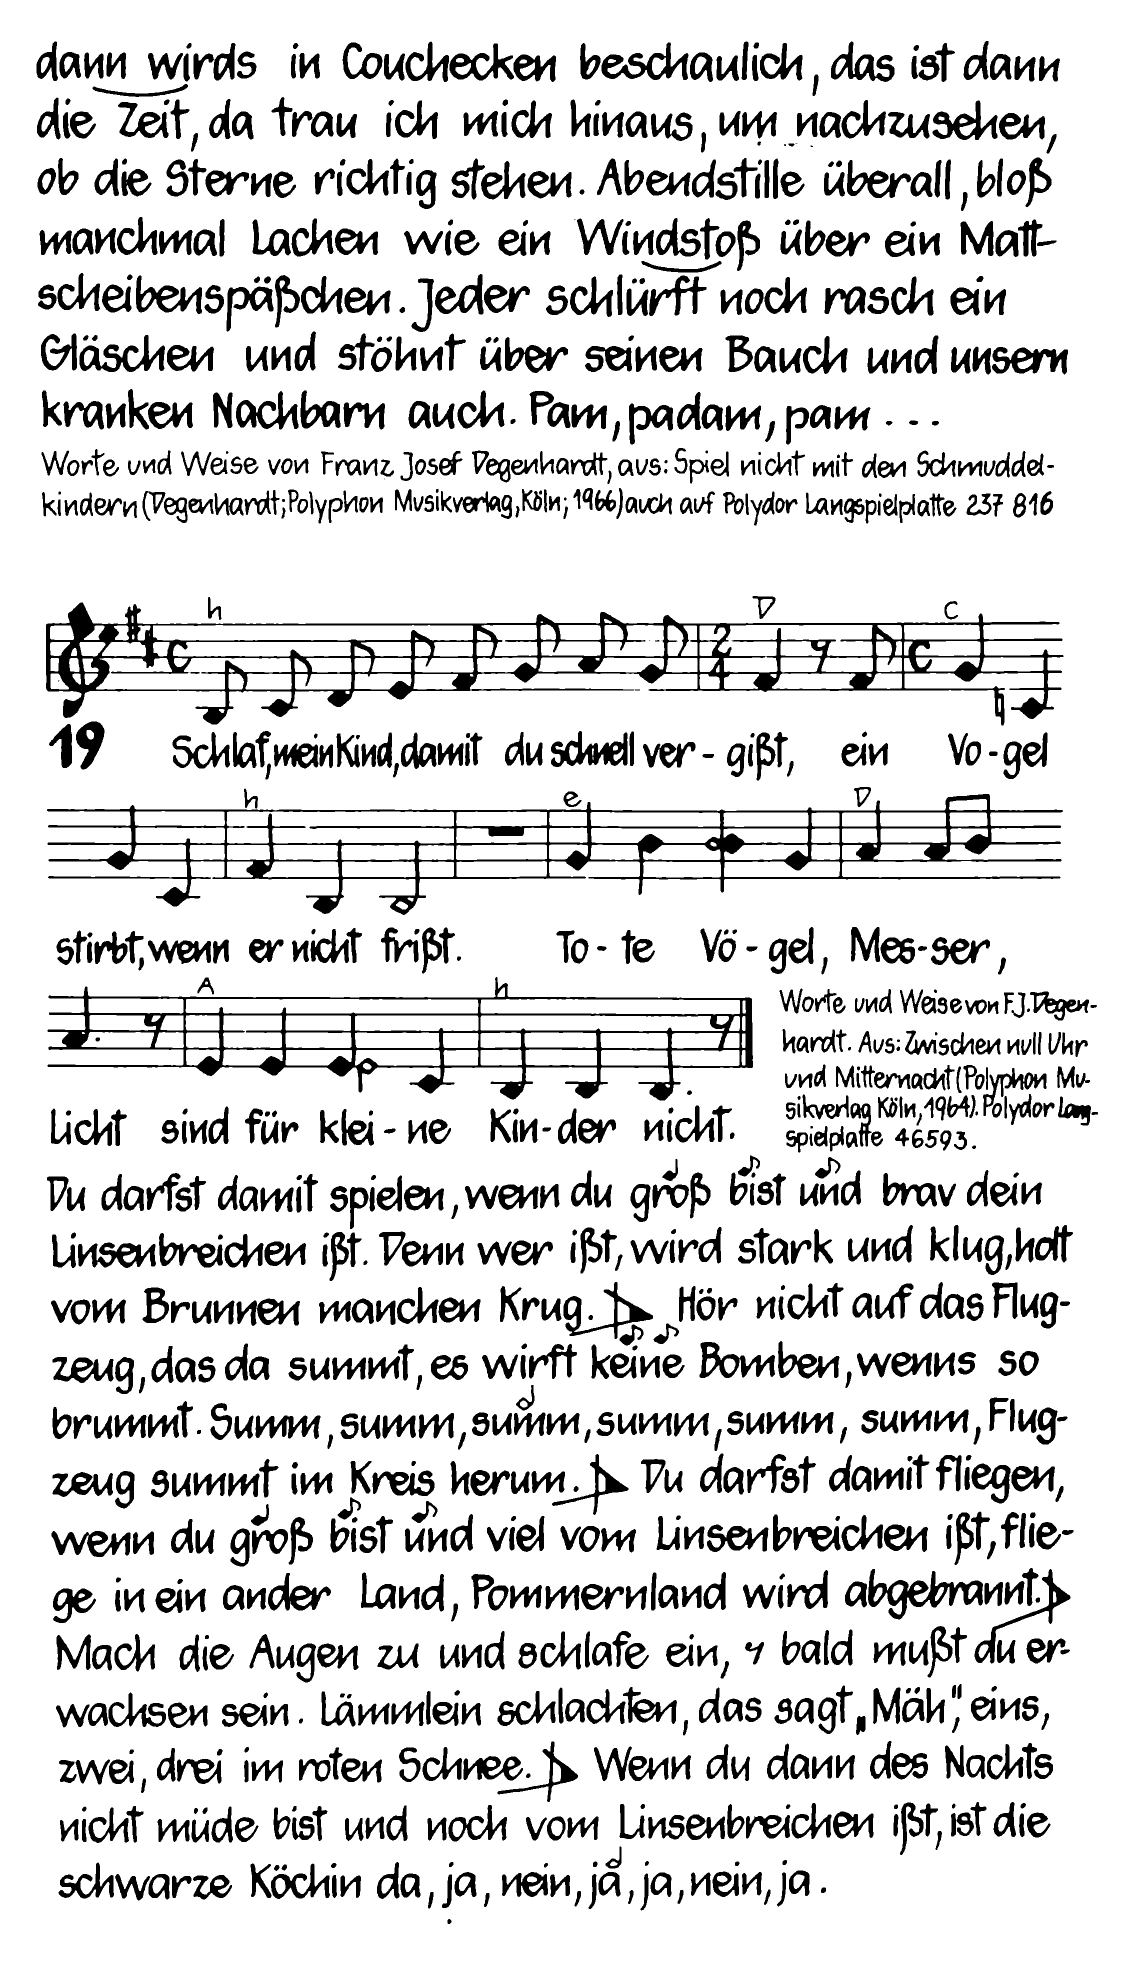 dann wirds in Couchecken beschaulich, das ist dann
die Zeit, da trau ich mich hinaus, um nachzusehen,
ob die Sterne richtig stehen. Abendstille überall, bloß
manchmal Lachen wie ein Windstoß über ein Matt-
scheibenspäßchen. Jeder schlürft noch rasch ein
Gläschen und stöhnt über seinen Bauch und unsern
kranken Nachbarn auch. Pam, padam, pam ...
Worte und Weise von Franz Josef Degenhardt, aus: Spiel nicht mit den Schmuddel-
kindern (Degenhardt; Polyphon Musikverlag, Köln; 1966) auch auf Polydor Langspielplatte 237 816
h D C
2
4
19 Schlaf, mein Kind, damit du schnell ver-gißt, ein Vo-gel
h e D
stirbt, wenn er nicht frißt. To-te Vö-gel, Mes-ser,
A h
Licht sind für klei-ne Kin-der nicht.
Worte und Weise von F.J. Degen-
hardt. Aus: Zwischen null Uhr
und Mitternacht (Polyphon Mu-
sikverlag Köln, 1964). Polydor Lang-
spielplatte 46593.
Du darfst damit spielen, wenn du groß bist und brav dein
Linsenbreichen ißt. Denn wer ißt, wird stark und klug, holt
vom Brunnen manchen Krug. Hör nicht auf das Flug-
zeug, das da summt, es wirft keine Bomben, wenns so
brummt. Summ, summ, summ, summ, summ, summ, Flug-
zeug summt im Kreis herum. Du darfst damit fliegen,
wenn du groß bist und viel vom Linsenbreichen ißt, flie-
ge in ein ander Land, Pommernland wird abgebrannt.
Mach die Augen zu und schlafe ein, bald mußt du er-
wachsen sein. Lämmlein schlachten, das sagt „Mäh", eins,
zwei, drei im roten Schnee. Wenn du dann des Nachts
nicht müde bist und noch vom Linsenbreichen ißt, ist die
schwarze Köchin da, ja, nein, ja, ja, nein, ja.